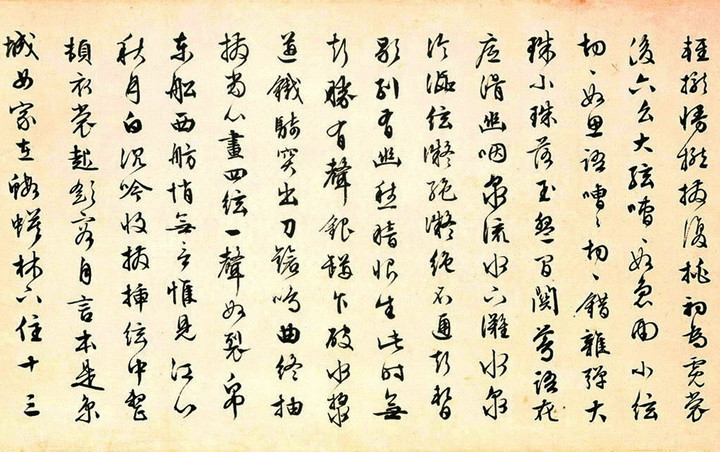 輕攏慢撚抹復挑初為霓裳
後六幺大弦嘈〻如急雨小弦
切〻如私語嘈〻切〻錯雜彈大
珠小珠落玉盤間關鶯語花
底滑幽咽泉流水下灘水泉
冷澀弦凝絕凝絕不通聲暫
歇別有幽愁暗恨生此時無
聲勝有聲銀瓶乍破水漿
迸鐵騎突出刀鎗鳴曲終抽
撥當心畫四弦一聲如裂帛
東船西舫悄無言惟見江心
秋月白沉吟收撥插弦中整
頓衣裳起斂容自言本是京
城女家在蝦蟆林下住十三